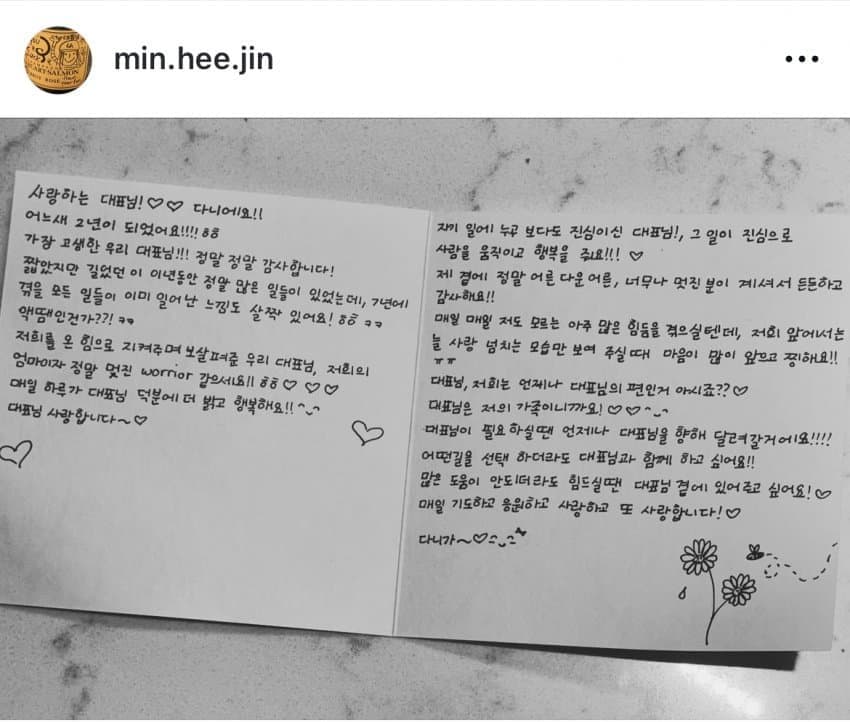 min.hee.jin
사랑하는 대표님!♡♡ 다니에요!!
어느새 2년이 되었어요!!!! ㅎㅎ
가장 고생한 우리 대표님!!! 정말 정말 감사합니다!
짧았지만 길었던 이 이년동안 정말 많은 일들이 있었는데, 7년에
겪을 모든 일들이 이미 일어난 느낌도 살짝 있어요! ㅎㅎ ㅋㅋ
액땜인건가??! ㅋㅋ
저희를 온 힘으로 지켜주며 보살펴준 우리 대표님, 저희의
엄마이자 정말 멋진 worrior 같으세요!! ㅎㅎ♡ ♡ ♡
매일 하루가 대표님 덕분에 더 밝고 행복해요!! ^_^
대표님 사랑합니다~♡
자기 일에 누구 보다도 진심이신 대표님!, 그 일이 진심으로
사람을 움직이고 행복을 줘요!!! ♡
제 곁에 정말 어른 다운 어른, 너무나 멋진 분이 계셔서 든든하고
감사해요!!
매일 매일 저도 모르는 아주 많은 힘듦을 겪으실텐데, 저희 앞에서는
늘 사랑 넘치는 모습만 보여 주실 때 마음이 많이 아프고 찡해요!!
ㅠㅠ
대표님, 저희는 언제나 대표님의 편인거 아시죠??♡
대표님은 저의 가족이니까요! ♡♡ ^_^
대표님이 필요하실땐 언제나 대표님을 향해 달려갈거에요!!!!
어떤길을 선택 하더라도 대표님과 함께 하고 싶어요!!
많은 도움이 안되더라도 힘드실땐 대표님 곁에 있어주고 싶어요!♡
매일 기도하고 응원하고 사랑하고 또 사랑합니다!♡
다니가~♡